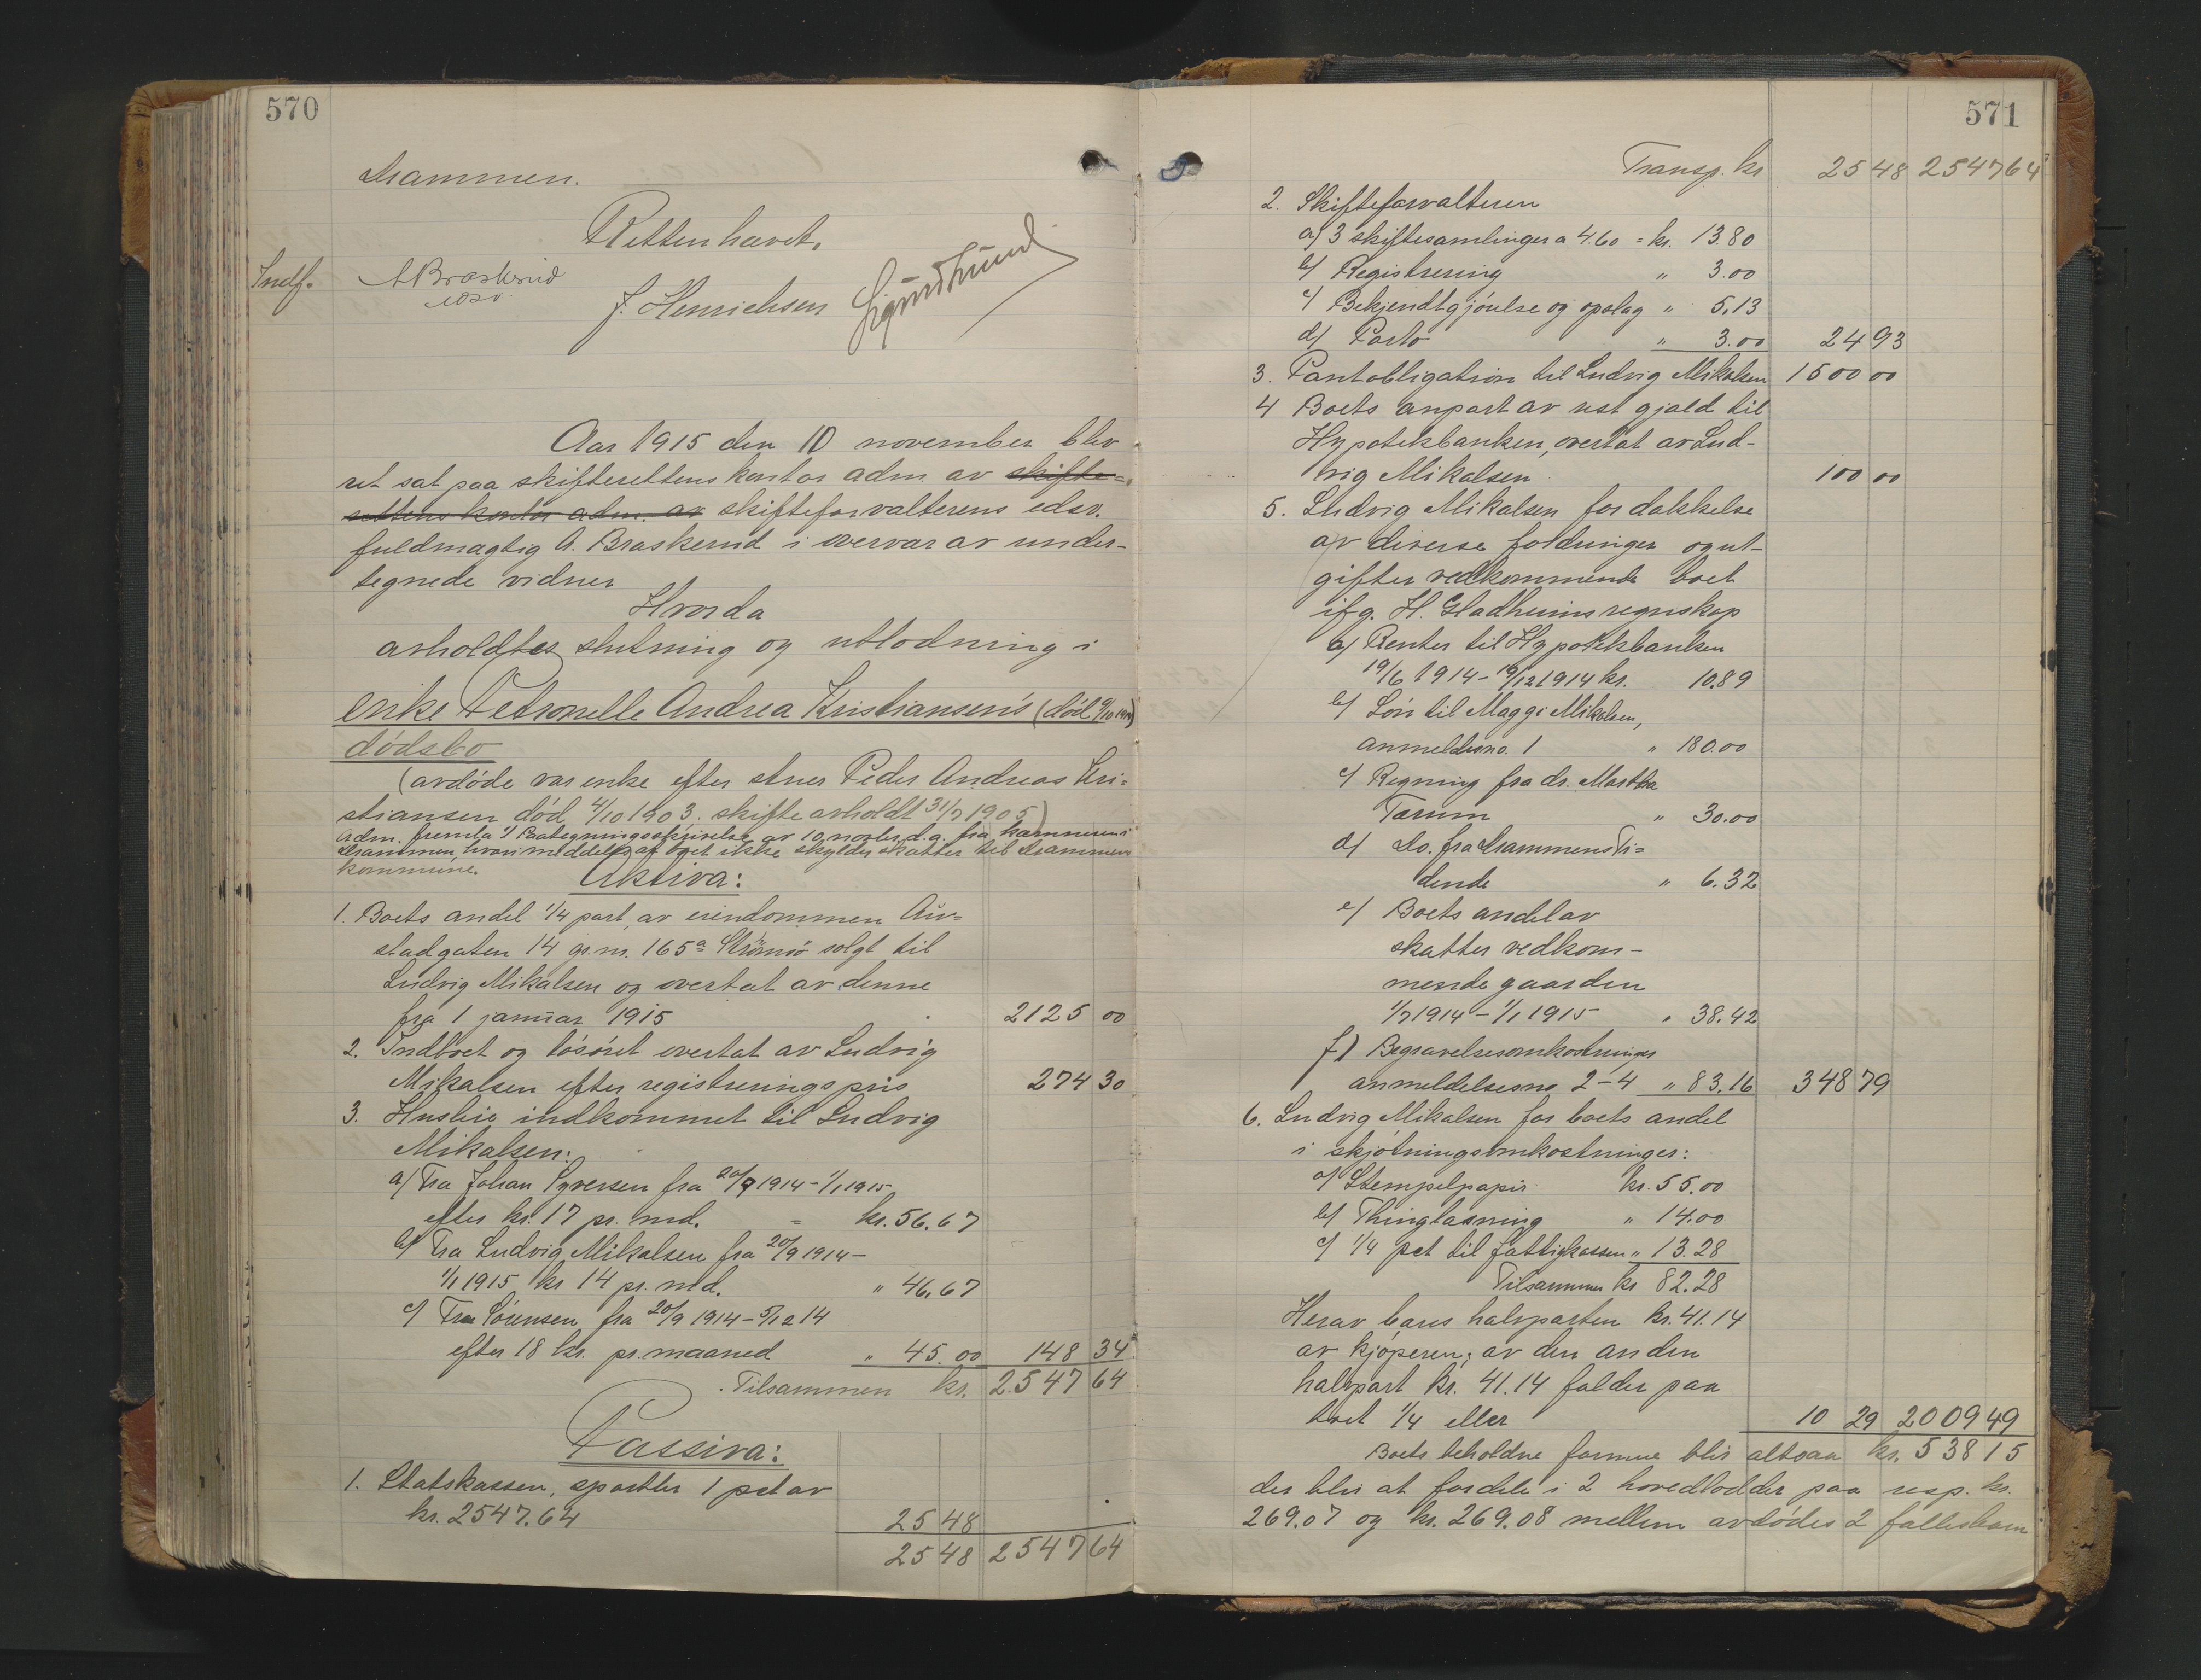 570
Drammen.
Retten hævet.
Indf.
A Braskerud
edsv.
J. Henrichsen Sigurd Lund
Aar 1915 den 10 november blev
ret sat paa skifterettens kontor adm av skifte=
rettens kontor adm. av skifteforvalterens edsv.
fuldmægtig A. Braskerud i overvær av under-
tegnede vidner
Hvorda
avholdtes slutning og utlodning i
enke Petronelle Andrea Kristiansen's (død 9/10 1914)
dødsbo
(avdøde var enke efter stuer Peder Andreas Kri=
stiansen død 4/10 1903. skifte avholdt 31/7 1905)
Adm. fremla 1) Paategningsskrivelse av 10 novbr. d.a. fra kæmneren i
Drammen, hvori meddeles at boet ikke skylder skatter til Drammens
kommune.
Aktiva:
1. Boets andel 1/4 part av eiendommen Au-
stadgaten 14 gr. nr. 165a Strømsø solgt til
Ludvig Mikalsen og overtat av denne
fra 1 januar 1915 2125 00
2. Indboet og løsøret overtat av Ludvig
Mikalsen efter registreringspris 274 30
3. Husleie indkommet til Ludvig
Mikalsen:
a) Fra Johan Syversen fra 20/9 1914 - 1/1 1915
efter kr. 17 pr. md. = kr. 56.67
b) Fra Ludvig Mikalsen fra 20/9 1914 -
1/1 1915 kr 14 pr. md. " 46.67
c) Fra Sørensen fra 20/9 1914 - 5/12 14
efter 18 kr. pr. maaned " 45.00 148 34
Tilsammen kr. 2547 64
Passiva:
1. Statskassen, sportler 1 pct av
kr. 2547.64 25 48
25 48 2547 64
571
Transp. kr 25 48 2547 64
2. Skifteforvalteren
a) 3 skiftesamlinger a 4.60 = kr. 13.80
b) Registrering " 3.00
c) Bekjendtgjørelse og opslag " 5.13
d) Porto " 3.00 24 93
3. Pantobligation til Ludvig Mikalsen 1500 00
4 Boets anpart av rest gjæld til
Hypotekbanken, overtat av Lud-
vig Mikalsen 100 00
5. Ludvig Mikalsen for dækkelse
av diverse fordringer og ut-
gifter vedkommende boet
ifg. H. Gladheims regnskap
a) Renter til Hypotekbanken
19/6 1914 - 19/12 1914 kr. 10.89
b) Løn til Maggi Mikalsen,
anmeldesno. 1 " 180.00
c) Regning fra dr. Martha
Tærum " 30.00
d) Do. fra Drammens Ti=
dende " 6.32
e) Boets andel av
skatter vedkom-
mende gaarden
1/7 1914 - 1/1 1915 " 38.42
f) Begravelsesomkostninger
anmeldelsesno 2-4 " 83.16 348 79
6. Ludvig Mikalsen for boets andel
i skjøtningsomkostninger:
a) Stempelpapir kr. 55.00
b) Thinglæsning " 14.00
c) 1/4 pct til fattigkassen " 13.28
Tilsammen kr 82.28
Herav bæres halvparten kr. 41.14
av kjøperen; av den anden
halvpart kr. 41.14 falder paa
boet 1/4 eller 10 29 2009 49
Boets beholdne formue blir altsaa kr. 538 15
der blir at fordele i 2 hovedlodder paa resp. kr.
269.07 og kr. 269.08 mellem avdødes 2 fællesbarn